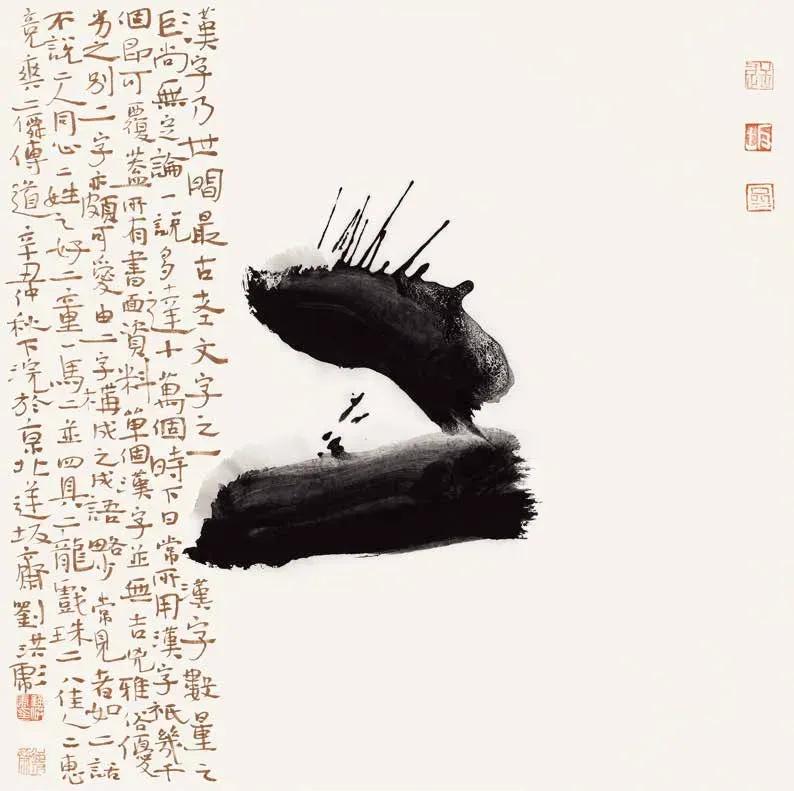 漢字乃世間最古老文字之一漢字數量之
巨尚無定論一說多達十萬個時下日常所用漢字祇幾千
個即可覆蓋所有書面資料單個漢字並無吉兇雅俗優
劣之別二字亦頗可愛由二字構成之成語略少常見者如二話
不說二人同心二姓之好二童一馬二並四具二龍戲珠二八佳人二惠
竞爽二僧傳道辛丑仲秋下浣於京北逆坂齋劉洪彪
二